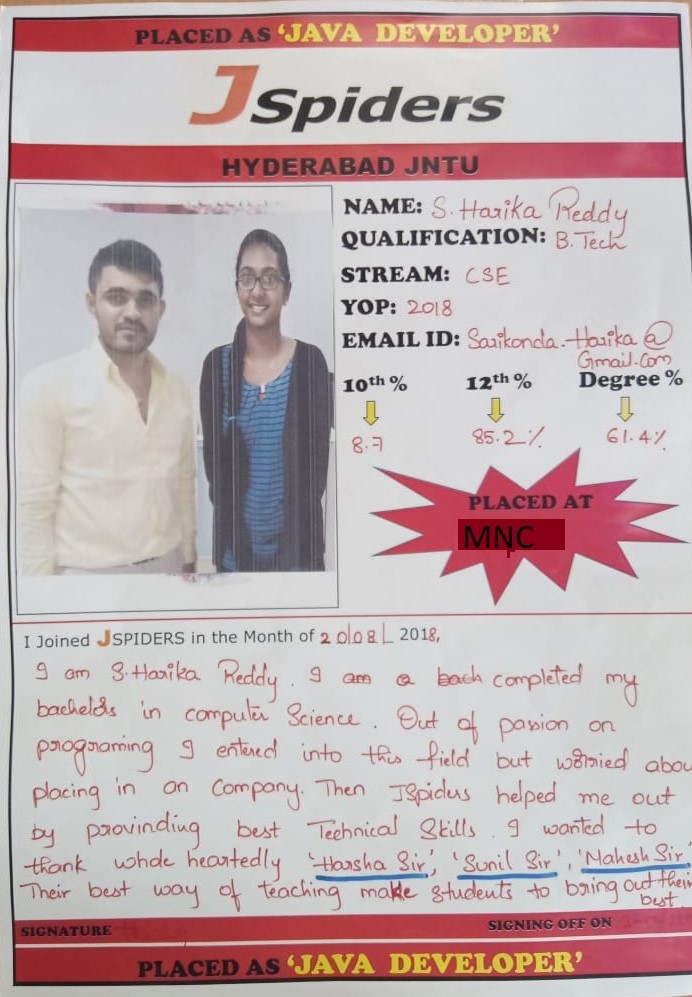 PLACED AS ‘JAVA DEVELOPER’
JSpiders
HYDERABAD JNTU
NAME: S. Harika Reddy
QUALIFICATION: B.Tech
STREAM: CSE
YOP: 2018
EMAIL ID: Sarikonda.Harika@
Gmail.com
10th % 12th % Degree %
8.7 85.2% 61.4%
PLACED AT
MNC
I Joined JSPIDERS in the Month of 20/08/ 2018,
I am S.Harika Reddy. I am a bach completed my
bachelors in computer Science. Out of passion on
programing I entered into this field but worried abou
placing in an Company. Then JSpiders helped me out
by provinding best Technical Skills. I wanted to
thank whole heartedly 'Harsha Sir', 'Sunil Sir', 'Mahesh Sir'
Their best way of teaching make students to bring out their
best
SIGNATURE SIGNING OFF ON
PLACED AS ‘JAVA DEVELOPER’